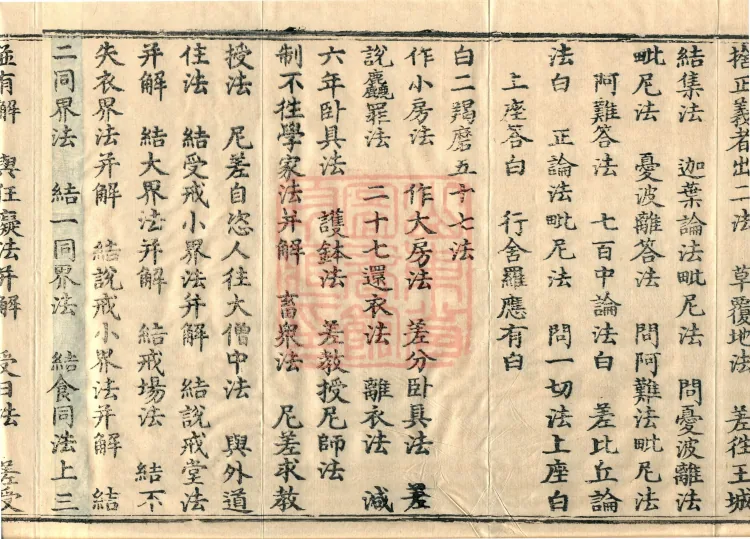 捨正義者出二法　草覆地法　差徃王城
結集法　迦葉論法毗尼法　問憂波離法
毗尼法　憂波離答法　問阿難法毗尼法
阿難答法　七百中論法白　差比丘論
法白　正論法毗尼法　問一切法上座白
上座答白　行舍羅應有白
白二羯磨五十七法
作小房法　作大房法　差分卧具法　差
說麤罪法　二十七還衣法　離衣法　減
六年卧具法　護鉢法　差教授尼師法
制不徃學家法并解　畜衆法　尼差求教
授法　尼差自恣人往大僧中法　與外道
住法　結受戒小界法并解　結說戒堂法
并解　結大界法并解　結戒場法　結不
失衣界法并解　結說戒小界法并解　結
二同界法　結一同界法　結食同法上三
並有解　與狂癡法并解　受日法　差受